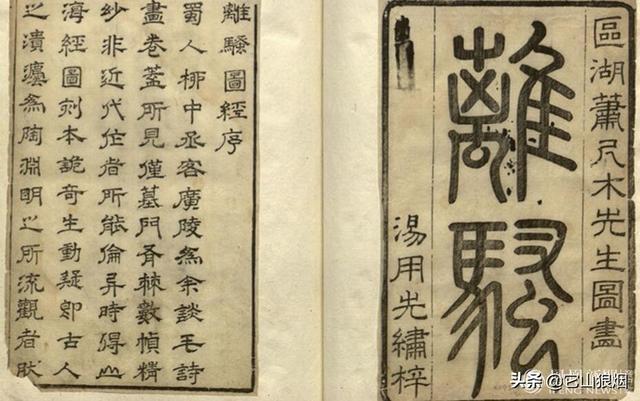 區湖蕭尺木先生圖畫
離騷
湯用先繡梓
離騷圖經序
蜀人栁中丞客廣陵為余談毛詩
畫卷蓋所見僅墓門有棘數幀精
玅非近代作者所能倫時得山
海經圖刻本詭奇生動疑即古人
之為陶淵明之所流觀者肰
IFENG NEWS
头条 @它山狼烟